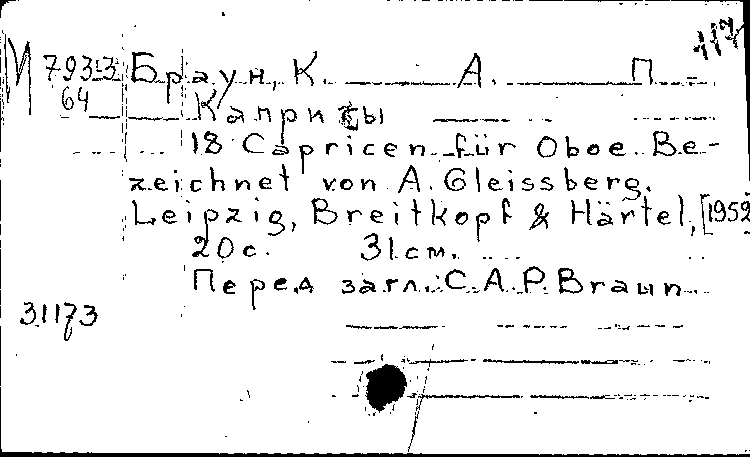 М 793-3 Браун, К. А. П.
64 Каприсы
18 Capricen für Oboe. Be-
zeichnet von A. Gleissberg.
Leipzig, Breitkopf & Härtel, [1952]
20 с. 31 см.
Перед загл.: C.A.P. Braun